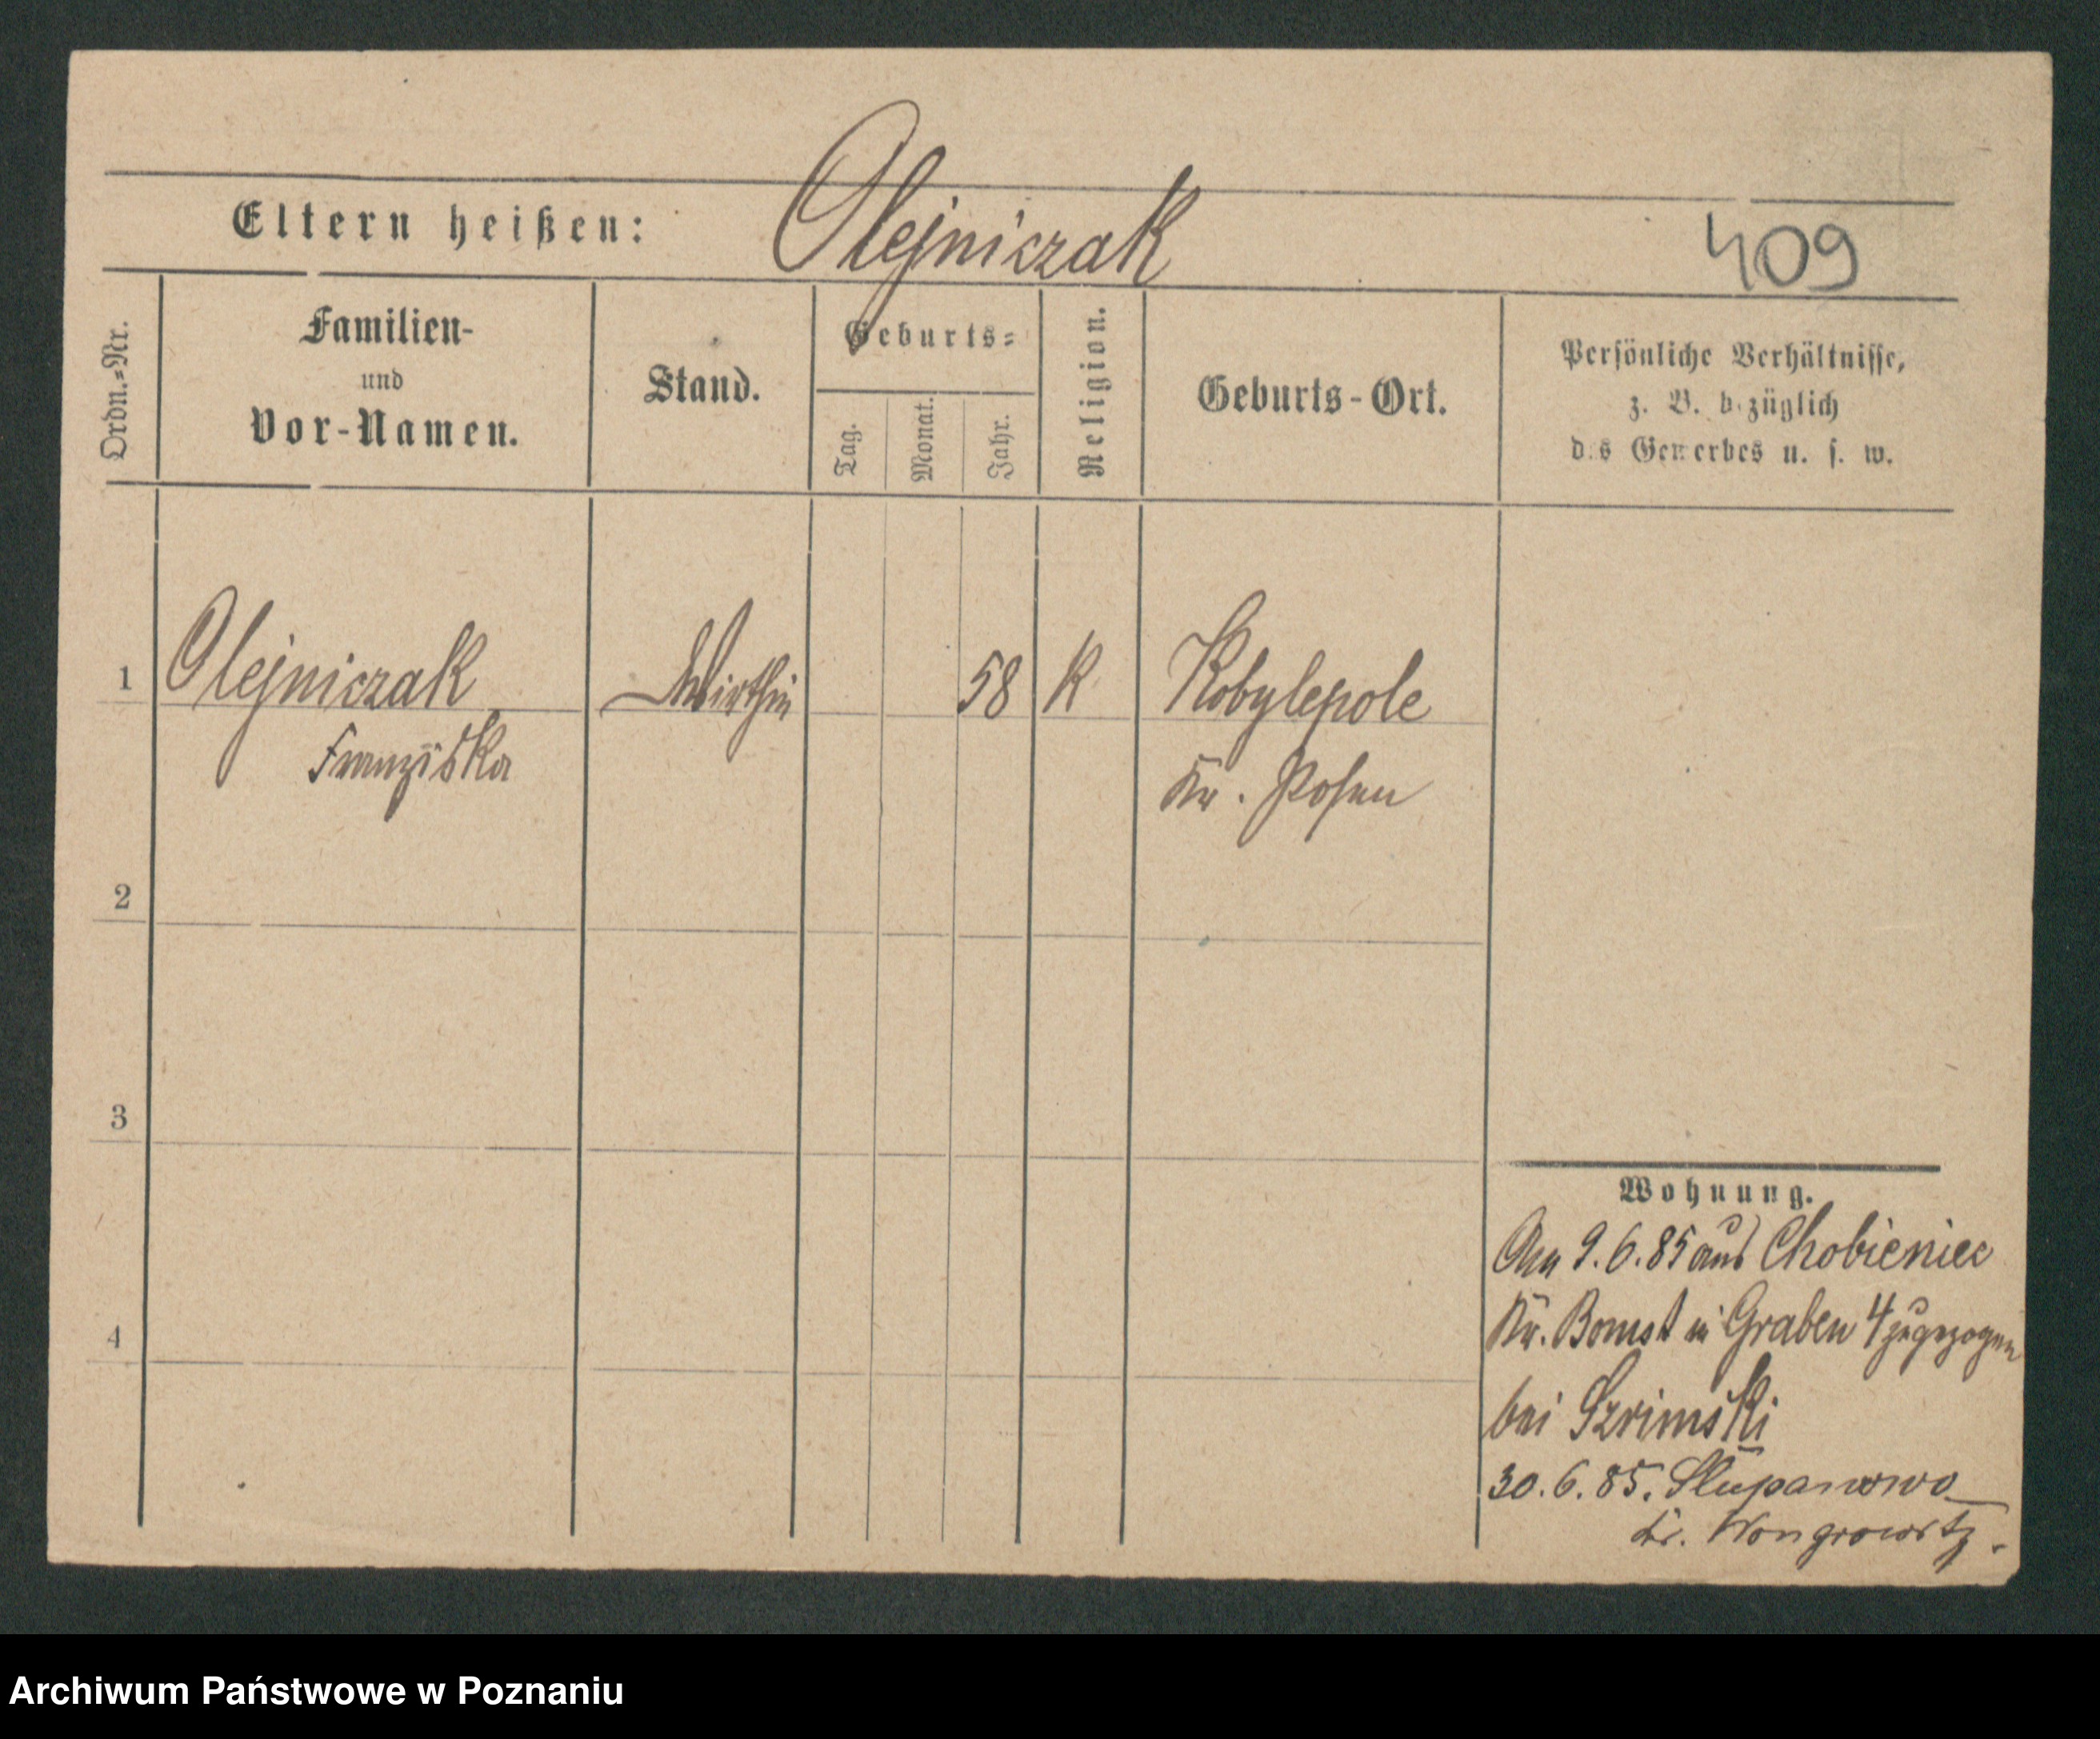 Eltern heißen: Olejniczak 409
Ordn.=Nr.
Familien-
und
Vor-Namen.
Stand.
Geburts=
Tag.
Monat.
Jahr.
Religion.
Geburts-Ort.
Persönliche Verhältnisse,
z. B. bezüglich
des Gewerbes u. s. w.
1 Olejniczak Wirthin 58 K Kobylepole
Franziska Kr. Posen
2
3
4
Wohnung.
Am 9.6.85 aus Chobienice
Kr. Bomst in Graben 4 zugezogen
bei Szrimski
30.6.85. Slupanowo
Kr. Wongrowitz.
Archiwum Państwowe w Poznaniu